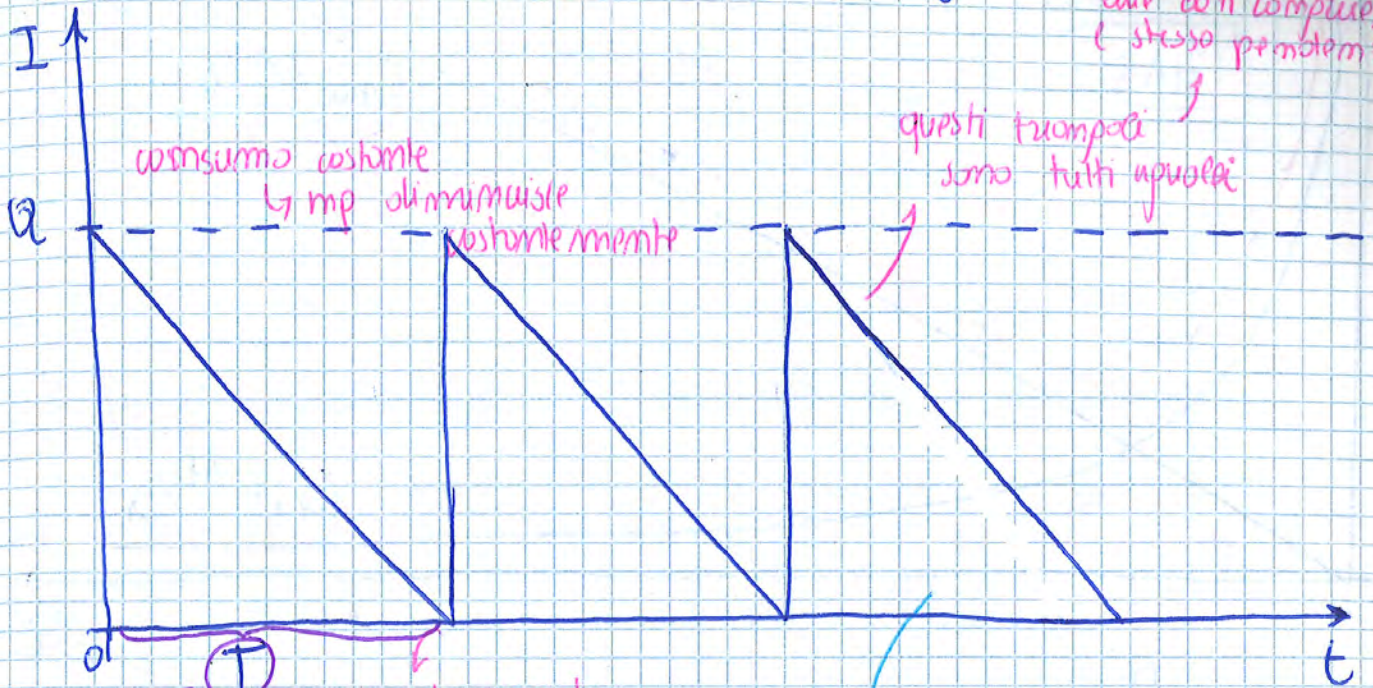 I
e stesso
questi triangoli
sono tutti uguali
consumo costante
↳ mp diminuisce
costantemente
Q
0
T
t